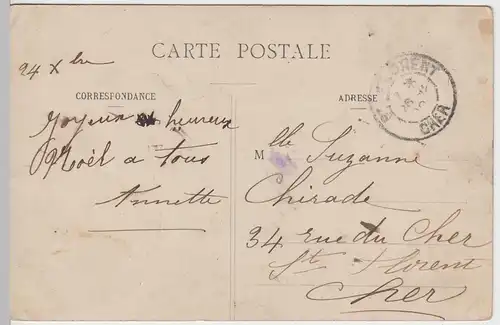 24 Xbre
CARTE POSTALE
CORRESPONDANCE
ADRESSE
ST FLORENT
CHER
Joyeux et heureux
Noël a tous
Annette
Mlle Suzanne
Chirade
34 rue du Cher
St Florent
Cher